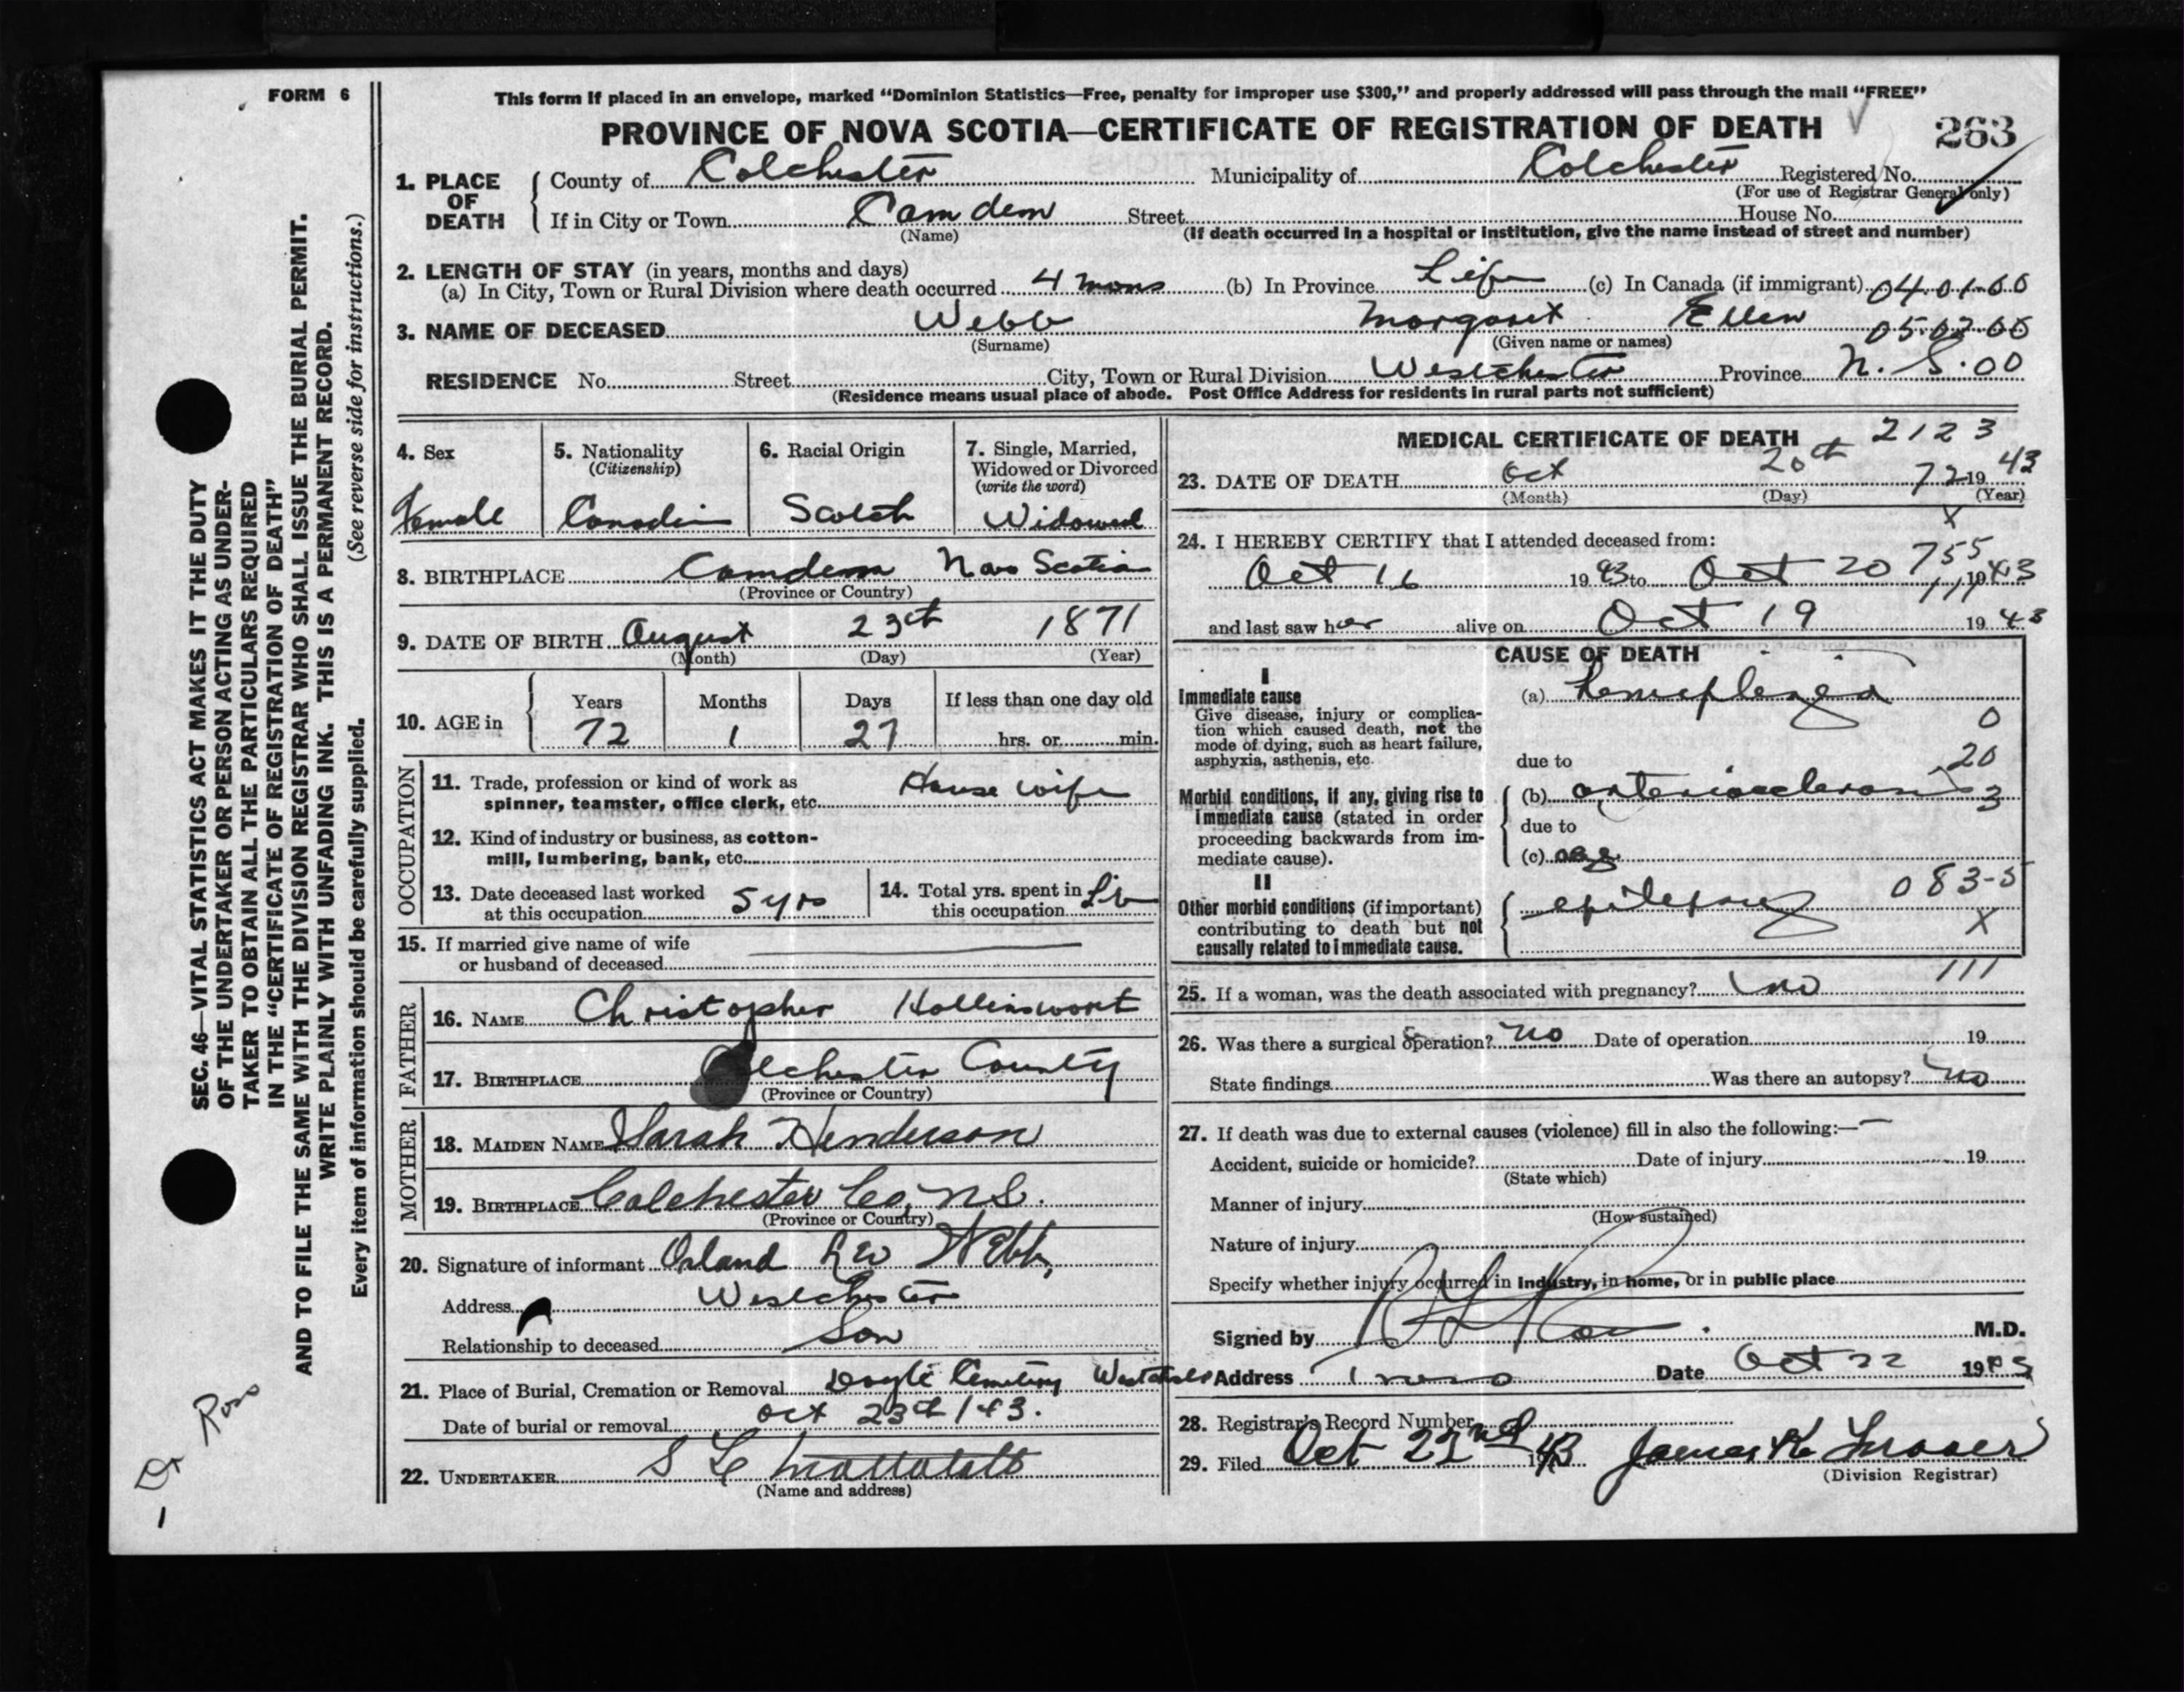 FORM 6
This form if placed in an envelope, marked “Dominion Statistics—Free, penalty for improper use $300,” and properly addressed will pass through the mail “FREE”
PROVINCE OF NOVA SCOTIA—CERTIFICATE OF REGISTRATION OF DEATH
263
1. PLACE OF DEATH
County of Colchester Municipality of Colchester Registered No.
(For use of Registrar General only)
If in City or Town Camden Street House No.
(Name) (If death occurred in a hospital or institution, give the name instead of street and number)
2. LENGTH OF STAY (in years, months and days)
(a) In City, Town or Rural Division where death occurred 4 mons (b) In Province Life (c) In Canada (if immigrant) 04 01 00
3. NAME OF DECEASED Webb Margaret Ellen 05 02 00
(Surname) (Given name or names)
RESIDENCE No. Street City, Town or Rural Division Westchester Province N. S. 00
(Residence means usual place of abode. Post Office Address for residents in rural parts not sufficient)
4. Sex
Female
5. Nationality
(Citizenship)
Canadin
6. Racial Origin
Scotch
7. Single, Married,
Widowed or Divorced
(write the word)
Widowed
8. BIRTHPLACE Camden Nova Scotia
(Province or Country)
9. DATE OF BIRTH August 23th 1871
(Month) (Day) (Year)
10. AGE in
Years Months Days If less than one day old
72 1 27 hrs. or min.
OCCUPATION
11. Trade, profession or kind of work as
spinner, teamster, office clerk, etc. House wife
12. Kind of industry or business, as cotton-
mill, lumbering, bank, etc.
13. Date deceased last worked
at this occupation 5 yrs
14. Total yrs. spent in
this occupation
15. If married give name of wife
or husband of deceased
FATHER
16. NAME Christopher Hollinswort
17. BIRTHPLACE Colchester County
(Province or Country)
MOTHER
18. MAIDEN NAME Sarah Henderson
19. BIRTHPLACE Colchester Co, N.S.
(Province or Country)
20. Signature of informant Orland Webb
Address Westchester
Relationship to deceased Son
21. Place of Burial, Cremation or Removal Doyle Cemetery
Date of burial or removal Oct 23th 1943.
22. UNDERTAKER S
(Name and address)
MEDICAL CERTIFICATE OF DEATH 2123
23. DATE OF DEATH Oct 20th 72 1943
(Month) (Day) (Year)
X
24. I HEREBY CERTIFY that I attended deceased from:
Oct 16 1943 to Oct 20 1943
755
111
and last saw her alive on Oct 19 1943
CAUSE OF DEATH
I
Immediate cause
Give disease, injury or complica-
tion which caused death, not the
mode of dying, such as heart failure,
asphyxia, asthenia, etc.
(a) hemiplegia
0
due to 20
Morbid conditions, if any, giving rise to
immediate cause (stated in order
proceeding backwards from im-
mediate cause).
(b) arteriosclerosis 3
due to
(c) age
II
Other morbid conditions (if important)
contributing to death but not
causally related to immediate cause.
epilepsy 083-5
X
25. If a woman, was the death associated with pregnancy? no 111
26. Was there a surgical operation? no Date of operation 19
State findings Was there an autopsy? no
27. If death was due to external causes (violence) fill in also the following:—
Accident, suicide or homicide? Date of injury 19
(State which)
Manner of injury
(How sustained)
Nature of injury
Specify whether injury occurred in industry, in home, or in public place
Signed by M.D.
Address Truro Date Oct 22 1943
28. Registrar's Record Number
29. Filed Oct 22nd 1943 James K Fraser
(Division Registrar)
SEC. 46—VITAL STATISTICS ACT MAKES IT THE DUTY
OF THE UNDERTAKER OR PERSON ACTING AS UNDER-
TAKER TO OBTAIN ALL THE PARTICULARS REQUIRED
IN THE “CERTIFICATE OF REGISTRATION OF DEATH”
AND TO FILE THE SAME WITH THE DIVISION REGISTRAR WHO SHALL ISSUE THE BURIAL PERMIT.
WRITE PLAINLY WITH UNFADING INK. THIS IS A PERMANENT RECORD.
Every item of information should be carefully supplied. (See reverse side for instructions.)
Dr Ross
1